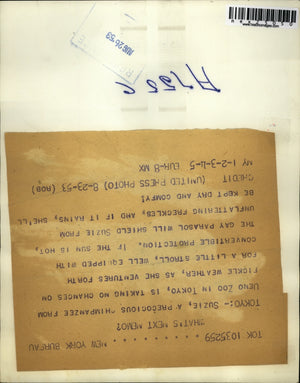 AUG 26 '53
TOK 1035259 . . . . . . . . NEW YORK BUREAU
WHAT'S NEXT MEMO?
TOKYO:- SUZIE, A PRECOCIOUS CHIMPANZEE FROM
UENO ZOO IN TOKYO, IS TAKING NO CHANCES ON
FICKLE WEATHER, AS SHE VENTURES FORTH
FOR A LITTLE STROLL, WELL EQUIPPED WITH
CONVERTIBLE PROTECTION. IF THE SUN IS HOT,
THE GAY PARASOL WILL SHIELD SUZIE FROM
UNFLATTERING FRECKLES, AND IF IT RAINS, SHE'LL
BE KEPT DRY AND COMFY!
CREDIT (UNITED PRESS PHOTO) 8-23-53 (ROB)
NY 1-2-3-4-5 EUR-8 MX